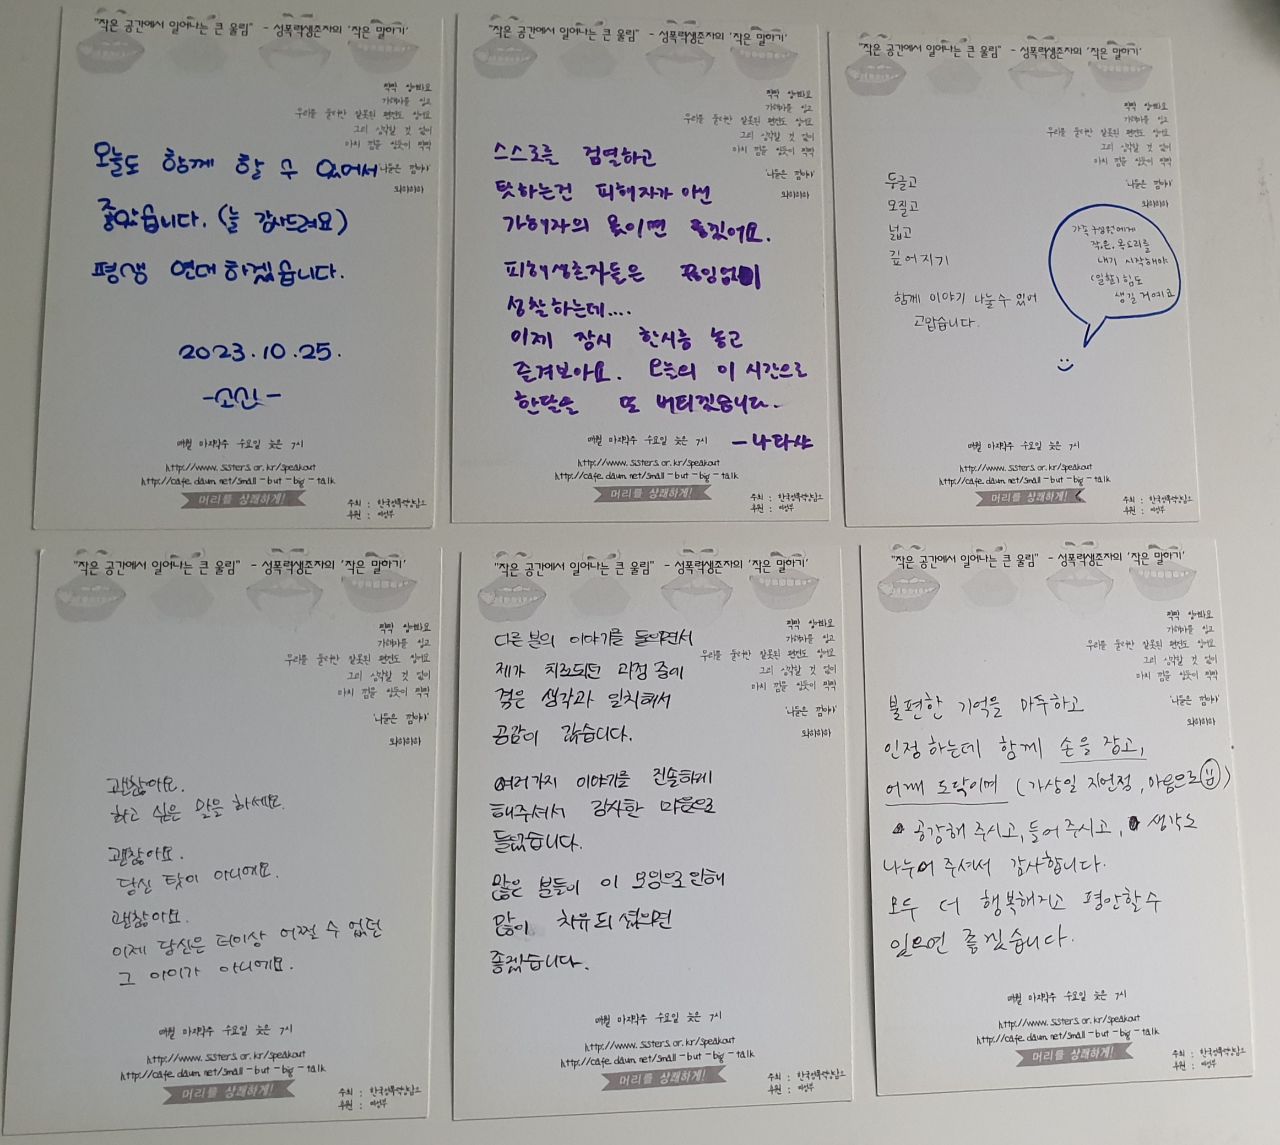 "작은 공간에서 일어나는 큰 울림" - 성폭력생존자의 '작은 말하기'
짝짝 양여라요
가해자를 잊고
우리를 둘러싼 잘못된 편견도 잊어요
그리 심각할 것 없이
마치 껌을 씹듯이 짝짝
'나들은 깜이나'
와하하하
오늘도 함께 할 수 있어서
좋았습니다. (늘 감사드려요)
평생 연대하겠습니다.
2023.10.25.
-소신-
매월 마지막주 수요일 늦은 7시
http://www.sisters.or.kr/speakout
http://cafe.daum.net/small-but-big-talk
머리를 상쾌하게!
주최 : 한국성폭력상담소
후원 : 여성부
"작은 공간에서 일어나는 큰 울림" - 성폭력생존자의 '작은 말하기'
가해자를 잊고
우리를 둘러싼 잘못된 편견도 잊어요
그리 심각할 것 없이
마치 껌을 씹듯이 짝짝
와하하하
스스로를 검열하고
탓하는건 피해자가 아닌
가해자의 몫이면 좋겠어요.
피해생존자들은 끊임없이
성찰하는데....
이제 잠시 한시름 놓고
즐겨보아요. 오늘의 이 시간으로
한달을 또 버티겠습니다.
-나타샤
매월 마지막주 수요일 늦은 7시
http://www.sisters.or.kr/speakout
http://cafe.daum.net/small-but-big-talk
머리를 상쾌하게!
주최 : 한국성폭력상담소
후원 : 여성부
"작은 공간에서 일어나는 큰 울림" - 성폭력생존자의 '작은 말하기'
가해자를 잊고
우리를 둘러싼 잘못된 편견도 잊어요
그리 심각할 것 없이
마치 껌을 씹듯이 짝짝
와하하하
둥글고
모질고
넓고
깊어지기
함께 이야기 나눌 수 있어
고맙습니다.
가족구성원에게
작은, 목소리를
내기 시작해야
(일할) 힘도
생길 거예요
매월 마지막주 수요일 늦은 7시
http://www.sisters.or.kr/speakout
http://cafe.daum.net/small-but-big-talk
머리를 상쾌하게!
주최 : 한국성폭력상담소
후원 : 여성부
"작은 공간에서 일어나는 큰 울림" - 성폭력생존자의 '작은 말하기'
가해자를 잊고
우리를 둘러싼 잘못된 편견도 잊어요
그리 심각할 것 없이
마치 껌을 씹듯이 짝짝
와하하하
괜찮아요.
하고 싶은 말을 하세요.
괜찮아요.
당신 탓이 아니에요.
괜찮아요.
이제 당신은 더이상 어쩔 수 없던
그 아이가 아니에요.
매월 마지막주 수요일 늦은 7시
http://www.sisters.or.kr/speakout
http://cafe.daum.net/small-but-big-talk
머리를 상쾌하게!
주최 : 한국성폭력상담소
후원 : 여성부
"작은 공간에서 일어나는 큰 울림" - 성폭력생존자의 '작은 말하기'
가해자를 잊고
우리를 둘러싼 잘못된 편견도 잊어요
그리 심각할 것 없이
마치 껌을 씹듯이 짝짝
와하하하
다른 분의 이야기를 들으면서
제가 치료되던 과정 중에
겪은 생각과 일치해서
공감이 갔습니다.
여러가지 이야기를 진솔하게
해주셔서 감사한 마음으로
들었습니다.
많은 분들이 이 모임으로 인해
많이 치유되셨으면
좋겠습니다.
매월 마지막주 수요일 늦은 7시
http://www.sisters.or.kr/speakout
http://cafe.daum.net/small-but-big-talk
머리를 상쾌하게!
주최 : 한국성폭력상담소
후원 : 여성부
"작은 공간에서 일어나는 큰 울림" - 성폭력생존자의 '작은 말하기'
가해자를 잊고
우리를 둘러싼 잘못된 편견도 잊어요
그리 심각할 것 없이
마치 껌을 씹듯이 짝짝
와하하하
불편한 기억을 마주하고
인정하는데 함께 손을 잡고,
어깨 도닥이며 (가상일 지언정, 마음으로)
공감해 주시고, 들어 주시고, 생각도
나누어 주셔서 감사합니다.
모두 더 행복해지고 평안할 수
있으면 좋겠습니다.
매월 마지막주 수요일 늦은 7시
http://www.sisters.or.kr/speakout
http://cafe.daum.net/small-but-big-talk
머리를 상쾌하게!
주최 : 한국성폭력상담소
후원 : 여성부